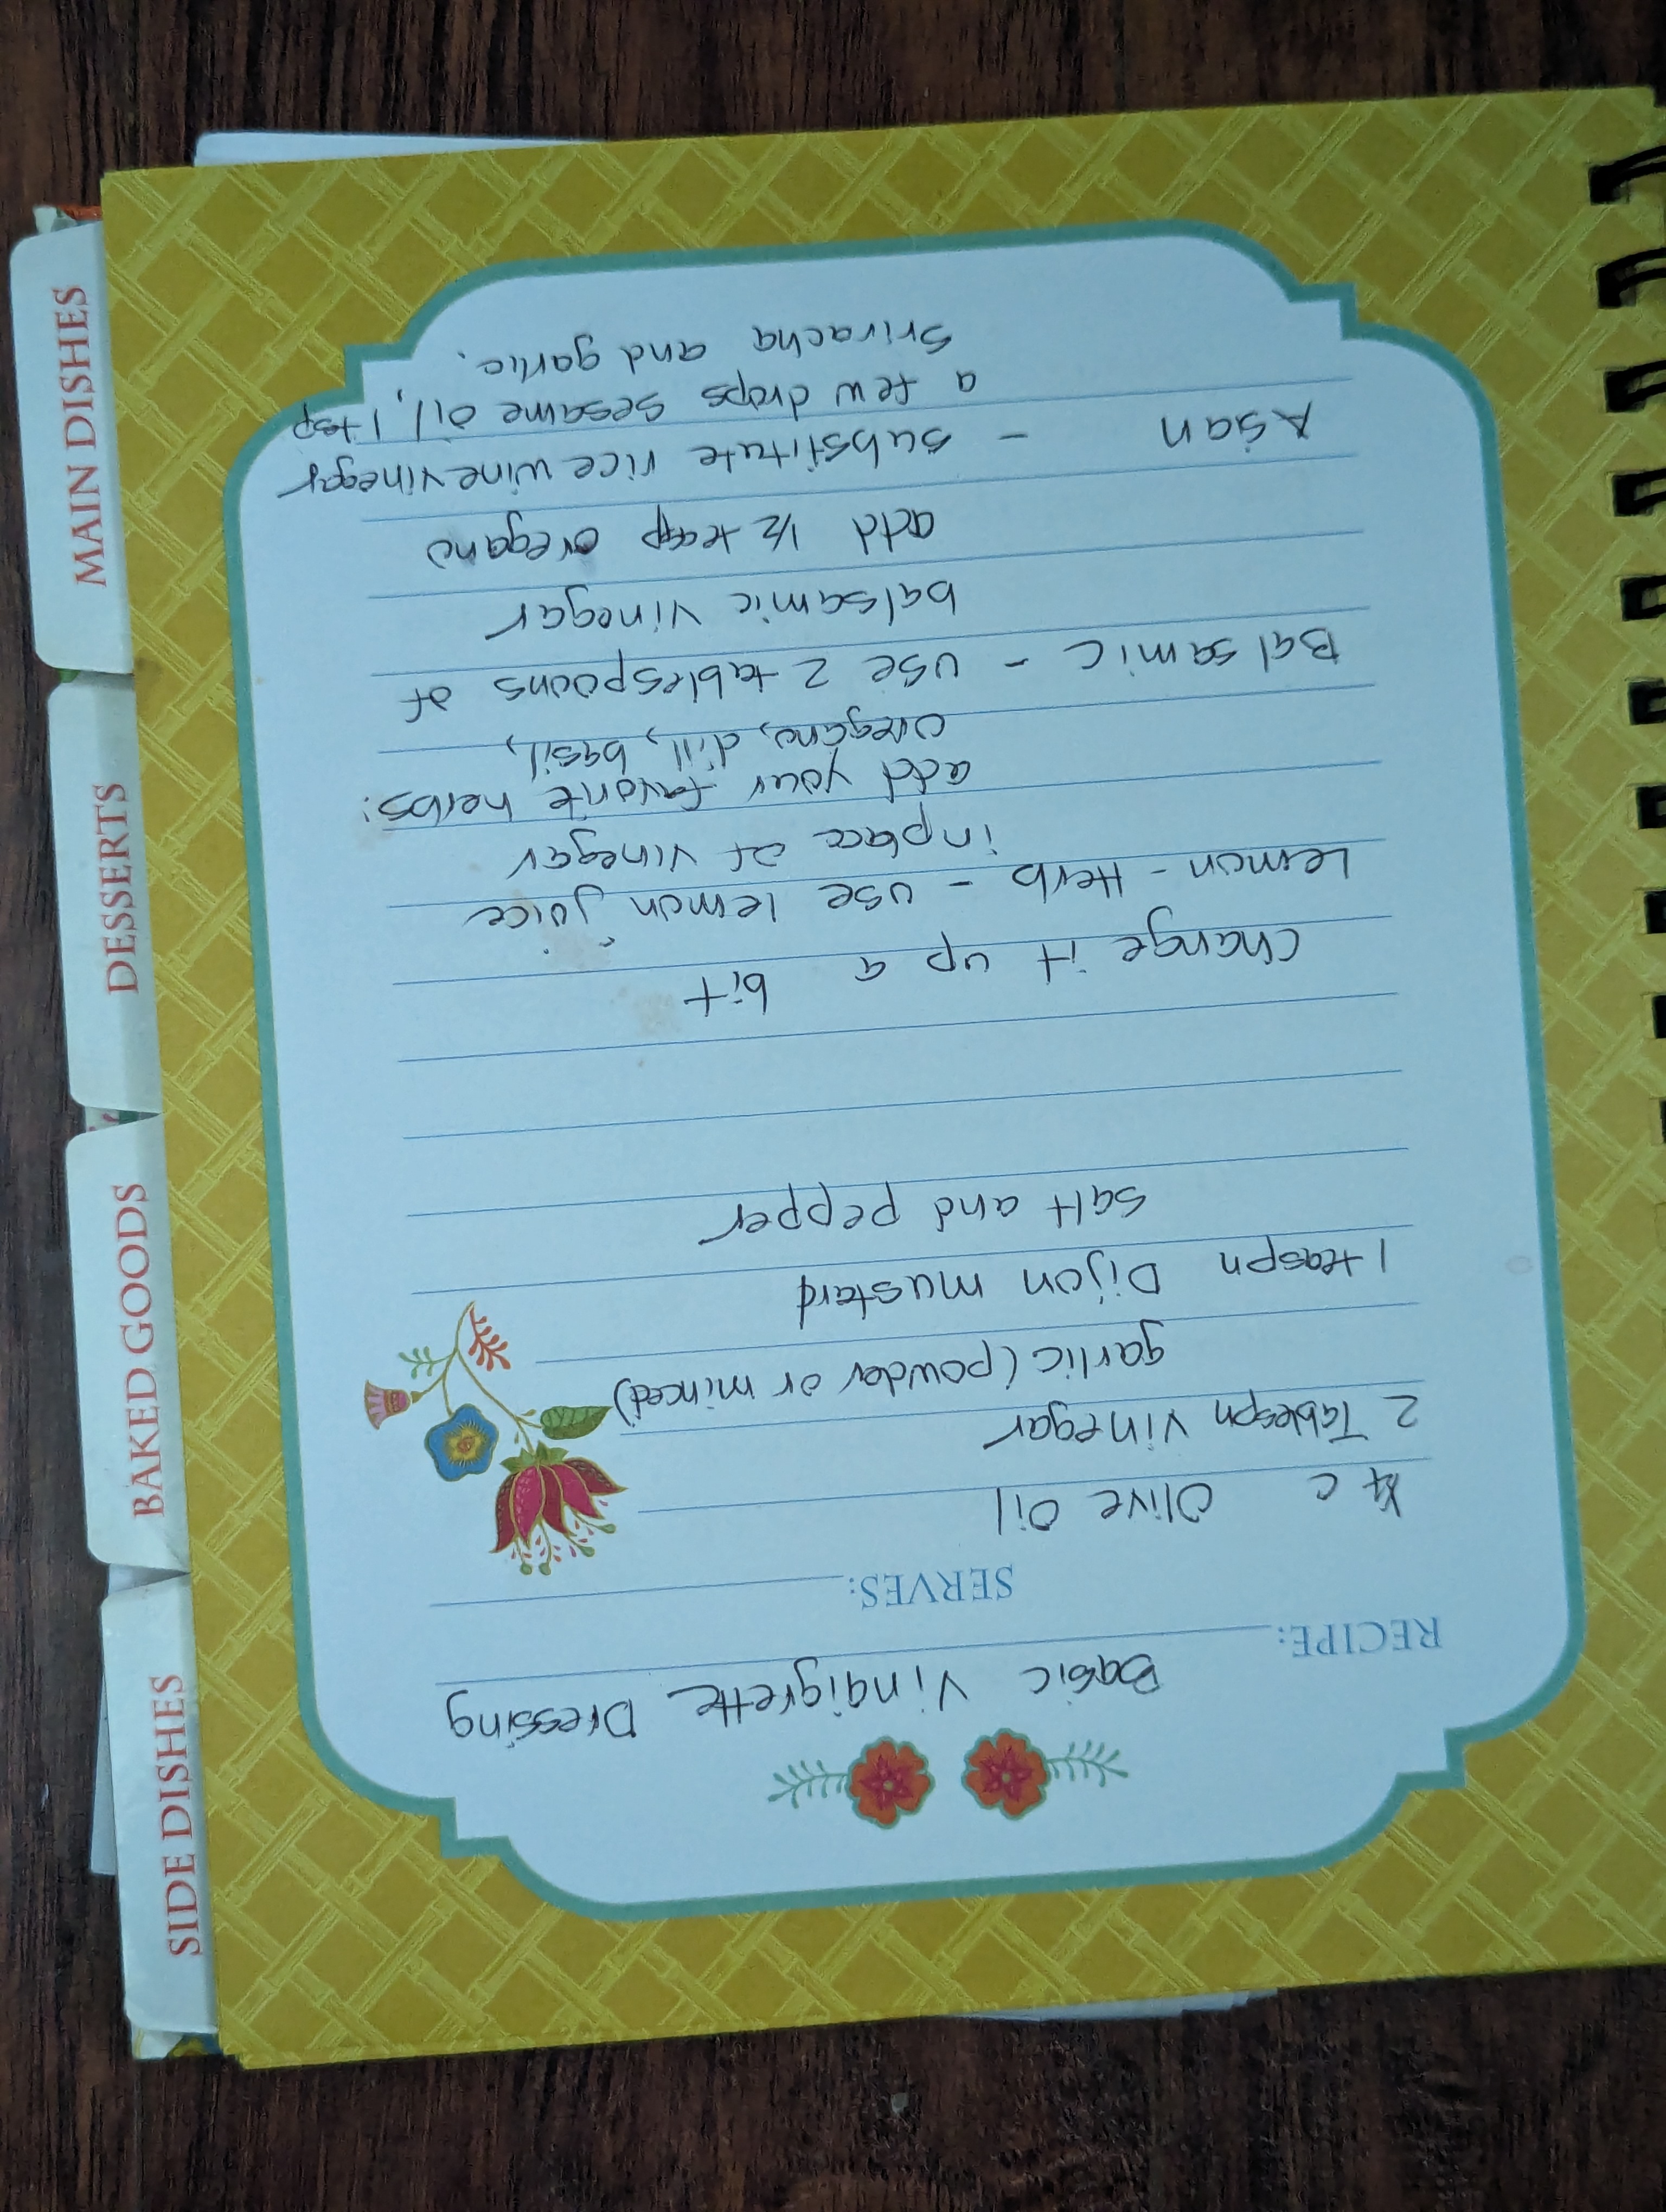 RECIPE: Basic Vinaigrette Dressing
SERVES:
¼ c Olive Oil
2 Tablespn Vinegar
garlic (powder or minced)
1 teaspn Dijon mustard
salt and pepper
Change it up a bit
Lemon - Herb - use lemon juice
in place of vinegar
add your favorite herbs:
oregano, dill, basil,
Balsamic - use 2 tablespoons of
balsamic vinegar
add ½ teasp oregano
Asan - substitute rice wine vinegar
a few drops sesame oil, 1 tsp
Sriracha and garlic.
SIDE DISHES
BAKED GOODS
DESSERTS
MAIN DISHES